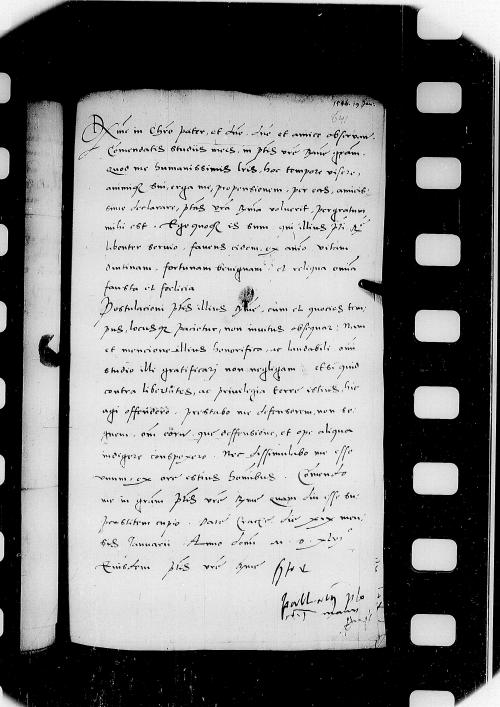 1546. 19 Jan.
641
Rme in Chro pater, et dne, dne et amice observan.
Comendatis studiis meis, in ptis vre Rme gram.
Quod me humanissimis lris, hoc tempore visere,
animiq sui, erga me, propensionem, per eas, amicis-
sime declarare, ptas vra Rma voluerit, pergratum
mihi est. Ego quoq is sum, qui illius pti Rme
libenter servio, favens eidem, ex animo vitam
diutinam, fortunam benignam et reliqua omia
fausta et foelicia
Postulacioni ptis illius Rme, cum et quocies tem-
pus, locusq pacietur, non invitus obsequar: Nam
et mencione illius honorifica, ac laudabili, omi
studio illi gratificari non negligam et si quid
contra libertates, ac privilegia terre istius, hic
agi offendero. prestabo me defensorem, non se-
gnem, oni eorum, que deffensione, et ope aliqua
indigere conspexero. Nec dissimulabo me esse
unum, ex ore istius hominibus. Comendo
me in gram ptis vre Rme quam diu esse su-
perstitem cupio. Date Cracovie die xix men-
sis Januarii. Anno domi M. D. xlvi
Eiusdem ptis vre Rme